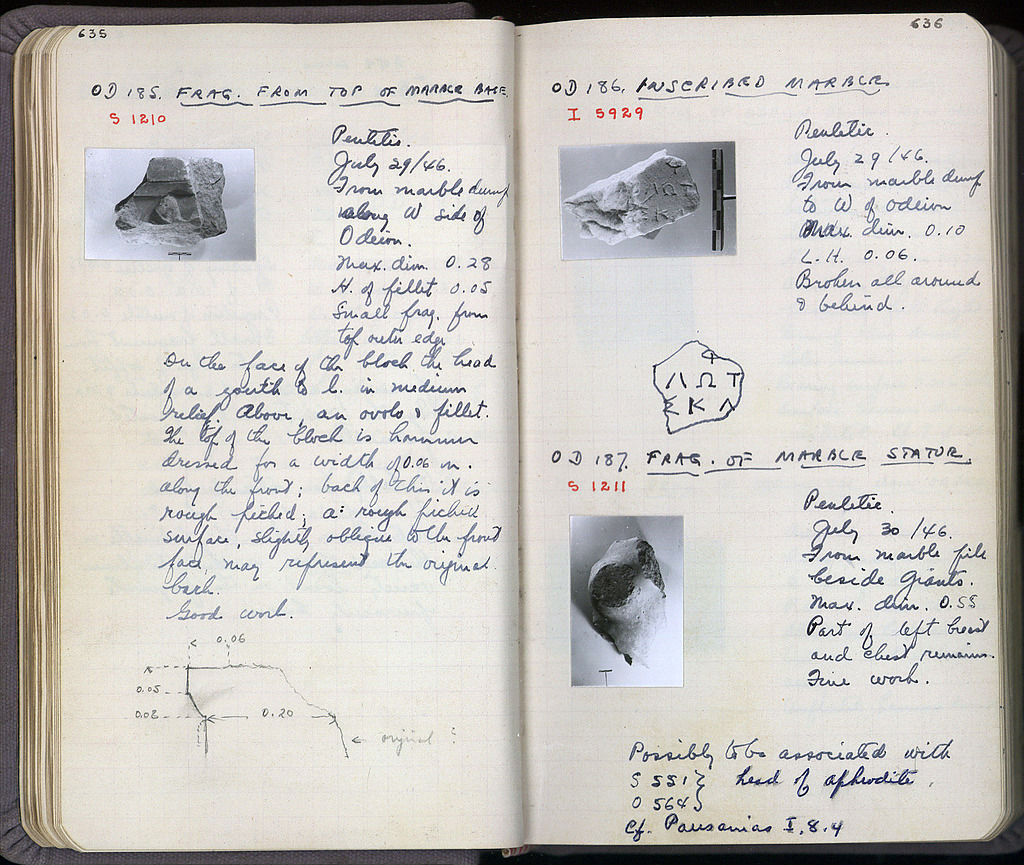 635
OD 185. FRAG. FROM TOP OF MARBLE BASE.
S 1210
Pentelic.
July 29/46.
From marble dump
along W side of
Odeion.
Max. dim. 0.28
H. of fillet 0.05
Small frag. from
top outer edge
On the face of the block the head
of a youth to l. in medium
relief. Above, an ovolo & fillet.
The top of the block is hammer
dressed for a width of 0.06 m.
along the front; back of this it is
rough picked; a rough picked
surface, slightly oblique to the front
face, may represent the original
back.
Good work.
0.06
0.05
0.02
0.20
original ?
636
OD 186. INSCRIBED MARBLE
I 5929
Pentelic.
July 29/46.
From marble dump
to W of Odeion
Max. dim. 0.10
L.H. 0.06.
Broken all around
& behind.
Λ Ω Τ
Σ Κ Λ
OD 187. FRAG. OF MARBLE STATUE.
S 1211
Pentelic.
July 30/46.
From marble pile
beside Giants.
Max. dim. 0.55
Part of left breast
and chest remains.
Fine work.
Possibly to be associated with
S 551 } head of aphrodite.
O 564 }
Cf. Pausanias I, 8.4